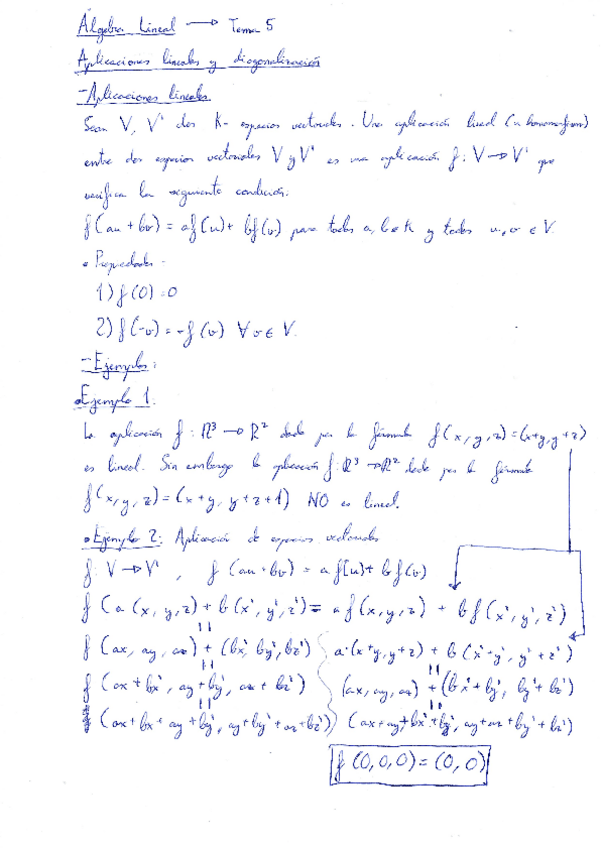 Álgebra Lineal → Tema 5
Aplicaciones lineales y diagonalización
- Aplicaciones lineales
Sean V, V' dos K-espacios vectoriales. Una aplicación lineal (u homomorfismo)
entre dos espacios vectoriales V y V' es una aplicación f: V → V' que
verifica la siguiente condición:
f(au + bv) = af(u) + bf(v) para todos a, b ∈ K y todos u, v ∈ V.
• Propiedades -
1) f(0) = 0
2) f(-v) = -f(v) ∀ v ∈ V.
- Ejemplos:
• Ejemplo 1.
La aplicación f: ℝ³ → ℝ² dada por la fórmula f(x, y, z) = (x+y, y+z)
es lineal. Sin embargo la aplicación f: ℝ³ → ℝ² dada por la fórmula
f(x, y, z) = (x+y, y+z+1) NO es lineal.
• Ejemplo 2: Aplicación de espacios vectoriales
f: V → V' , f(au + bv) = af(u) + bf(v)
f(a(x, y, z) + b(x', y', z') = af(x, y, z) + bf(x', y', z')
f(ax, ay, az) + (bx', by', bz') a·(x+y, y+z) + b(x'+y', y'+z')
f(ax + bx', ay + by', az + bz') (ax, ay, az) + (bx'+by', by'+bz')
(ax + bx + ay + by', ay + by' + az + bz') (ax + ay + bx' + by', ay + az + by' + bz')
f(0, 0, 0) = (0, 0)